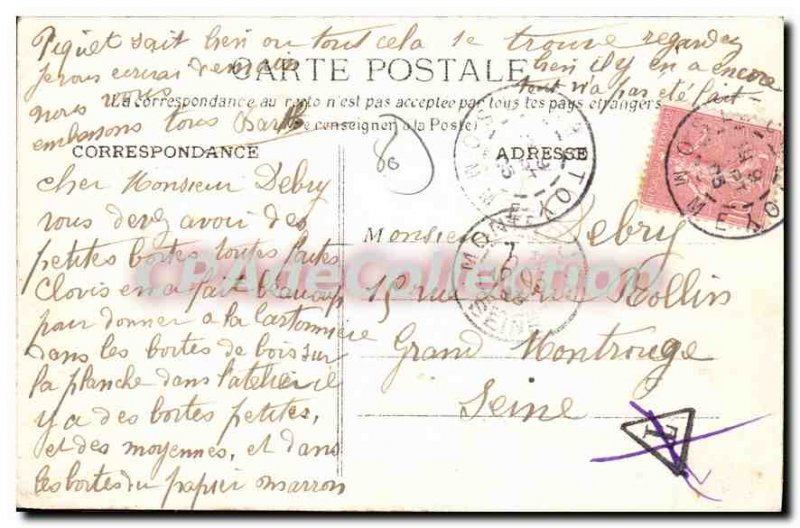 Piquet sait bien ou tout cela se trouve regardez
bien il y en a encore
tout n'a pas été fait
je vous écrirai demain
nous vous
embrassons tous
CARTE POSTALE
La correspondance au recto n'est pas acceptée par tous les pays étrangers
(Se renseigner à la Poste)
80
CORRESPONDANCE
ADRESSE
Cher Monsieur Debry
vous devez avoir des
petites boites toutes faites
Clovis en a fait beaucoup
pour donner a la Cartonnière
dans les boites de bois sur
la planche dans l'atelier il
y a des boites petites,
et des moyennes, et dans
les boites du papier marron
Monsieur Debry
15 rue Rollin
Grand Montrouge
Seine
SEINE
T
CPA de Collection